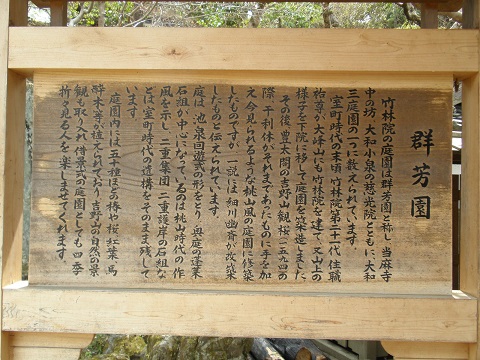 群芳園
竹林院の庭園は群芳園と称し当麻寺
中の坊、大和小泉の慈光院とともに、大和
三庭園の一つに数えられています。
室町時代の末頃、竹林院第二十一代住職
祐尊が大峰山にも竹林院を建て、又山上の
様子を下院に移して庭園を築造しました。
その後、豊太閤の吉野山観桜(一五九四)の
際、千利休がそれまであったものに手を加
え今見られるような桃山風の庭園に修築
したものですが、一説には、細川幽斉が改築
したものと伝えられています。
庭は池泉回遊式の形をとり、奥庭の蓬莱
石組が中心になっているのは桃山時代の作
風を示し、二重集団、二重護岸の石組な
どは室町時代の遺構をそのまま残して
います。
庭園内には五十種ほどの椿や桜、紅葉、馬
酔木等が植えられており吉野山の自然の景
観も取り入れ借景式の庭園としても四季
折々見る人を楽しませてくれます。